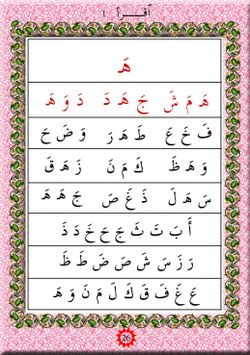 اقرأ ١
هَ
هَ مَ شَ جَ هَ دَ دَ وَ هَ
فَ خَ عَ طَ هَ رَ وَ ضَ حَ
وَ هَ ظَ كَ مَ نَ زَ هَ قَ
سَ هَ لَ ذَ غَ صَ جَ هَ هَ
أَ بَ تَ ثَ جَ حَ خَ دَ ذَ
رَ زَ سَ شَ صَ ضَ طَ ظَ
عَ غَ فَ قَ كَ لَ مَ نَ وَ هَ
26